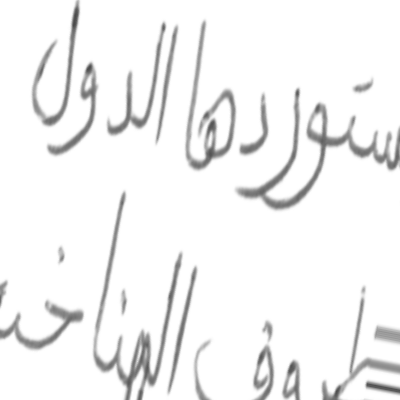 ستوردها الدول
ظروف المناخ